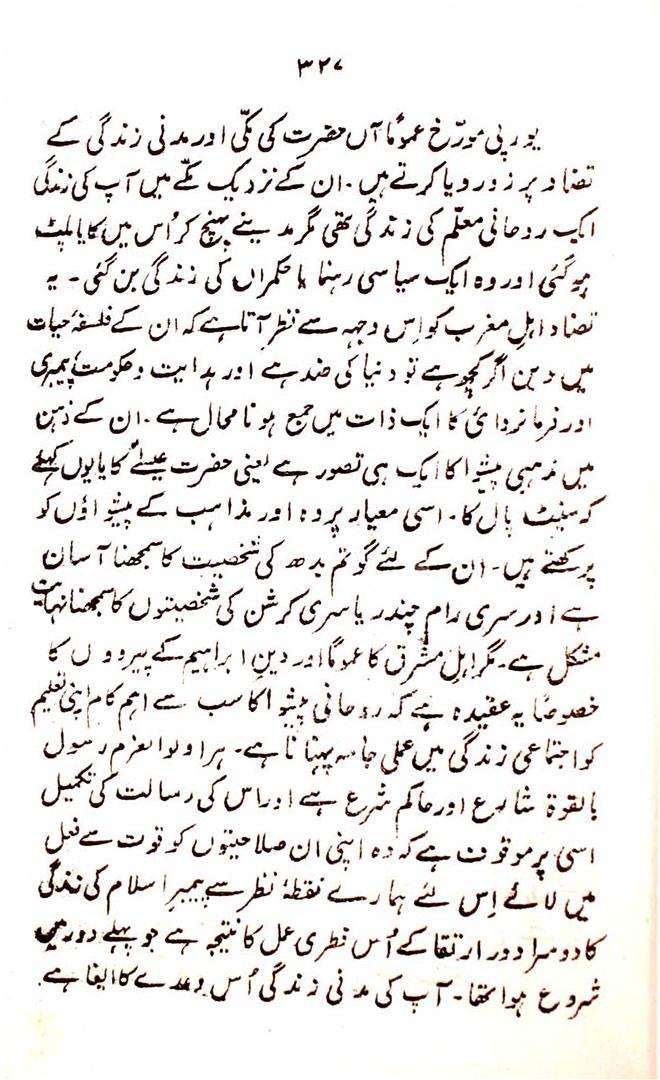 ۳۲۷
یورپی مورّخ عموماً آں حضرت کی مکّی اور مدنی زندگی کے
تضاد پر زور دیا کرتے ہیں۔ ان کے نزدیک مکّے میں آپ کی زندگی
ایک روحانی معلّم کی زندگی تھی مگر مدینے پہنچ کر اُس میں کایا پلٹ
ہو گئی اور وہ ایک سیاسی رہنما یا حکمراں کی زندگی بن گئی۔ یہ
تضاد اہلِ مغرب کو اِس وجہہ سے نظر آتا ہے کہ ان کے فلسفۂ حیات
میں دین اگر کچھ ہے تو دنیا کی ضد ہے اور ہدایت و حکومت، پیمبری
اور فرمانروائی کا ایک ذات میں جمع ہونا محال ہے۔ ان کے ذہن
میں مذہبی پیشوا کا ایک ہی تصور ہے یعنی حضرت عیسےٰؑ کا یا یوں کہئے
کہ سینٹ پال کا۔ اسی معیار پر وہ اور مذاہب کے پیشواؤں کو
پرکھتے ہیں۔ ان کے لئے گوتم بدھ کی شخصیت کا سمجھنا آسان
ہے اور سری رام چندر یا سری کرشن کی شخصیتوں کا سمجھنا نہایت
مشکل ہے۔ مگر اہلِ مشرق کا عموماً اور دینِ ابراہیم کے پیرووں کا
خصوصاً یہ عقیدہ ہے کہ روحانی پیشوا کا سب سے اہم کام اپنی تعلیم
کو اجتماعی زندگی میں عملی جامہ پہنانا ہے۔ ہر اولوالعزم رسول
بالقوۃ شارع اور حاکمِ شرع ہے اور اس کی رسالت کی تکمیل
اسی پر موقوف ہے کہ وہ اپنی ان صلاحیتوں کو قوت سے فعل
میں لائے اِس لئے ہمارے نقطۂ نظر سے پیمبرِ اسلام کی زندگی
کا دوسرا دور ارتقا کے اُس فطری عمل کا نتیجہ ہے جو پہلے دور میں
شروع ہوا تھا۔ آپ کی مدنی زندگی اُس وعدے کا ایفا ہے